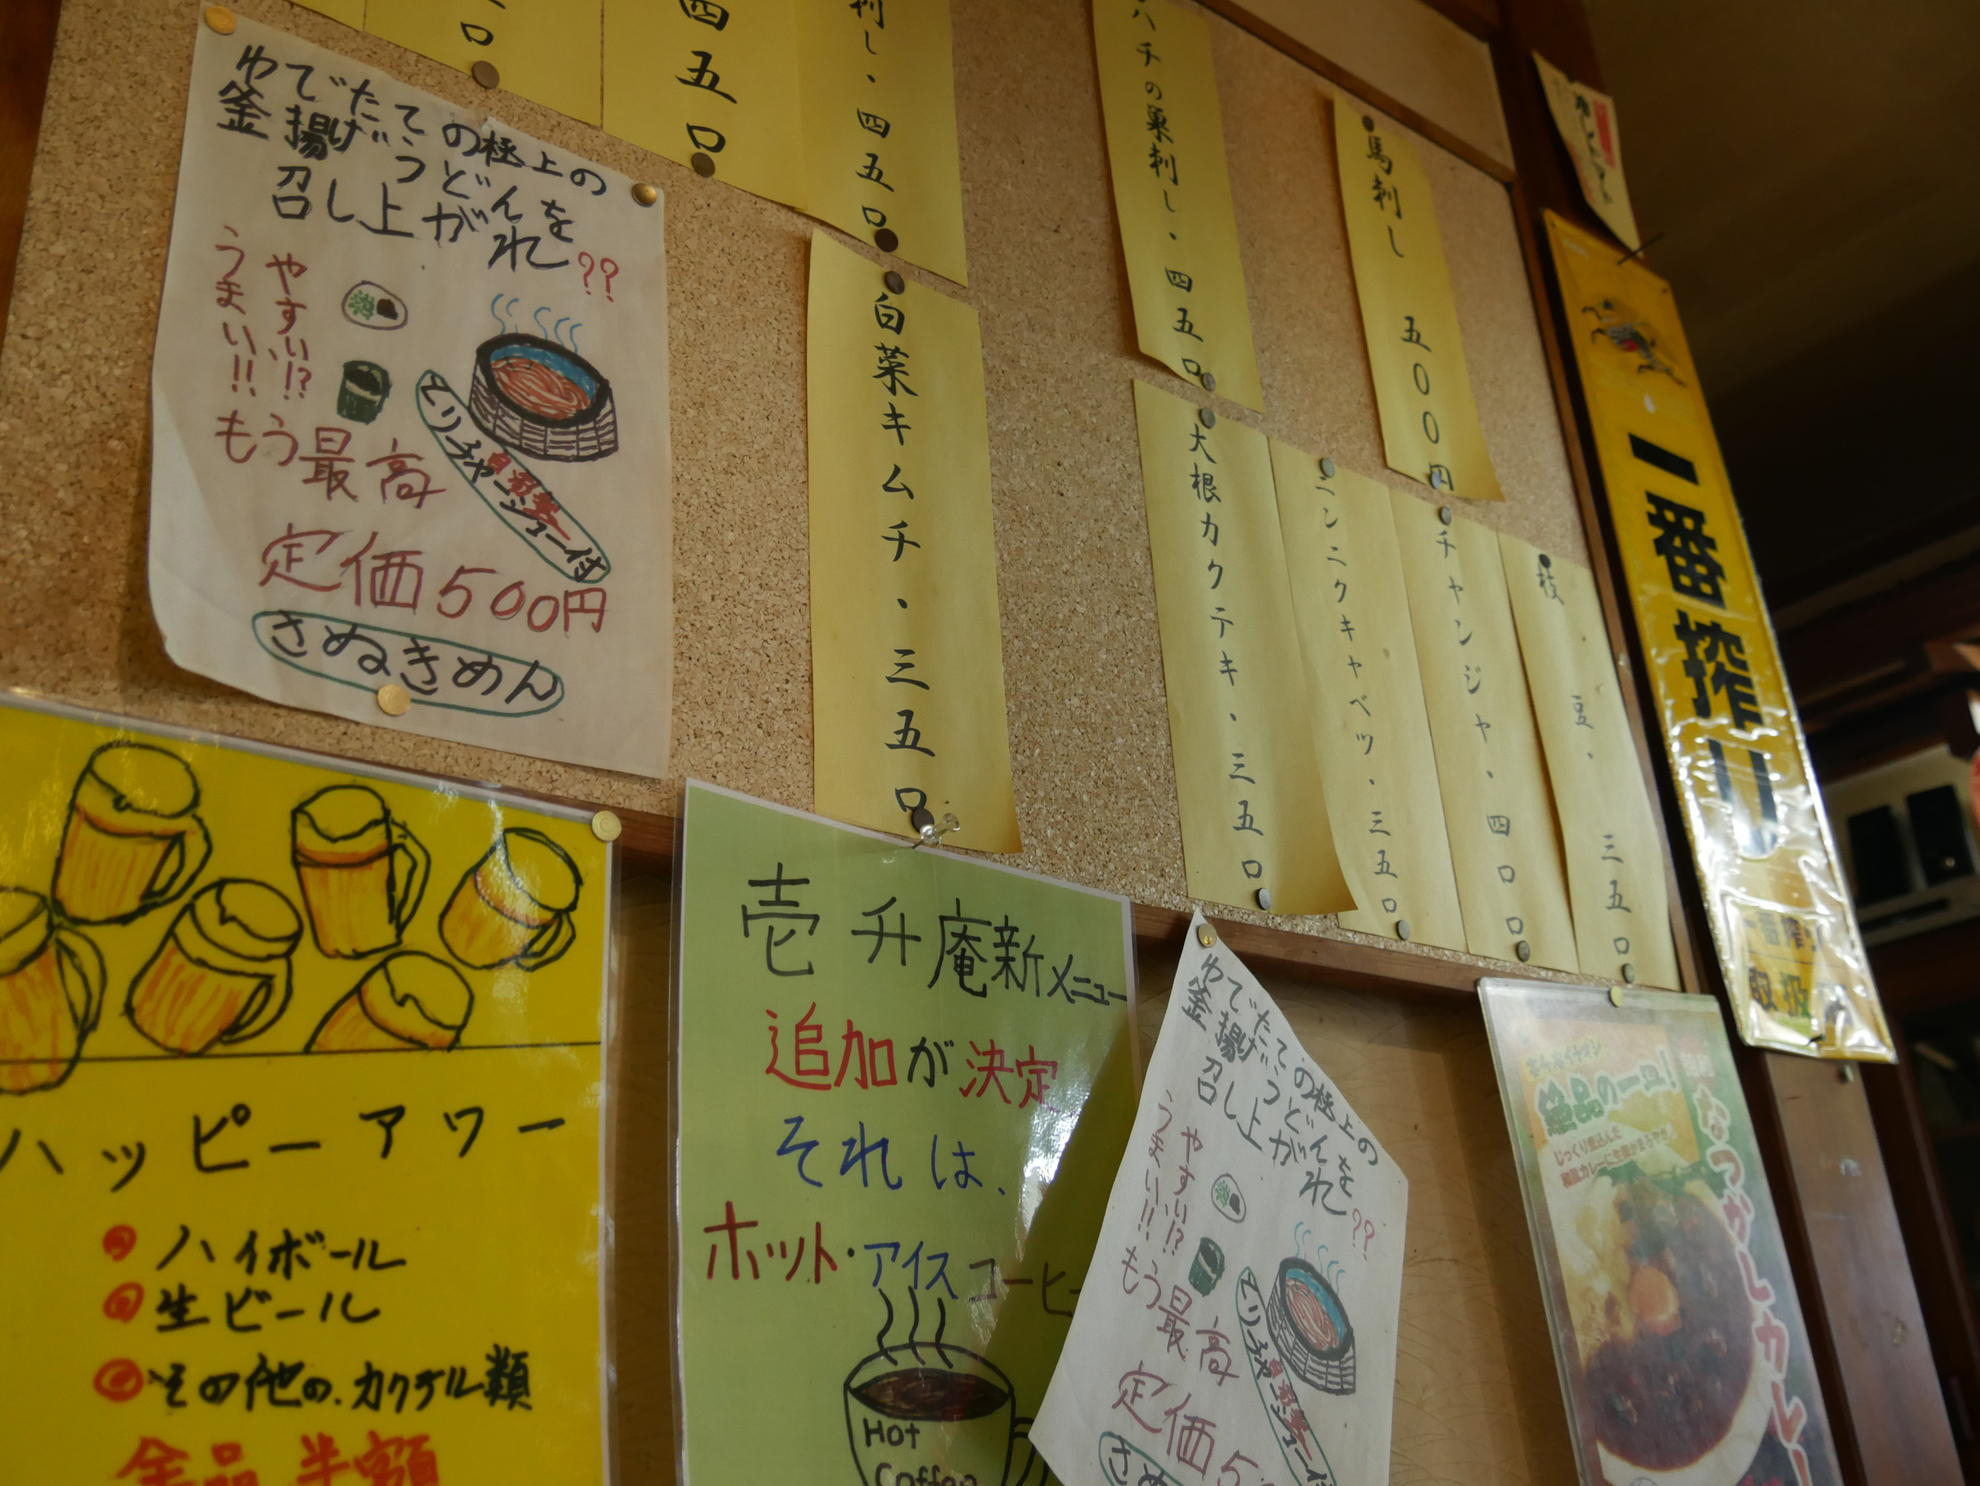 ゆでたての極上の
釜揚げうどんを
召し上がれ??
やすい!?
うまい!!
もう最高
とりチャーシュー付
定価500円
さぬきめん
四五口
刺し・四五口
白菜キムチ・三五口
ハチの巣刺し・四五口
馬刺し 五00円
大根カクテキ・三五口
ニンニクキャベツ・三五口
チャンジャ・四口口
枝豆・三五口
一番搾り
取扱
ハッピーアワー
ハイボール
生ビール
その他のカクテル類
全品半額
壱升庵新メニュー
追加が決定
それは、
ホット・アイスコーヒ
Hot
Coffee
ゆでたての極上の
釜揚げうどんを
召し上がれ??
やすい!?
うまい!!
もう最高
とりチャーシュー付
定価5
さぬ
絶品の一皿!
じっくり煮込んだ
なつかしカレー